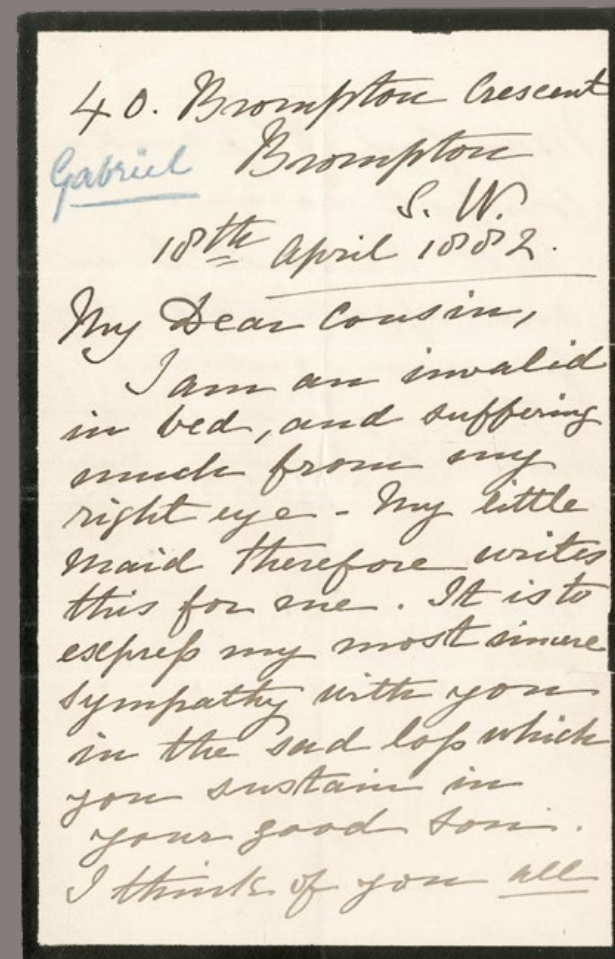 40. Brompton Crescent
Gabriel Brompton
S. W.
18th April 1882.
My Dear Cousin,
I am an invalid
in bed, and suffering
much from my
right eye - My little
Maid therefore writes
this for me. It is to
express my most sincere
sympathy with you
in the sad loss which
you sustain in
your good son.
I think of you all